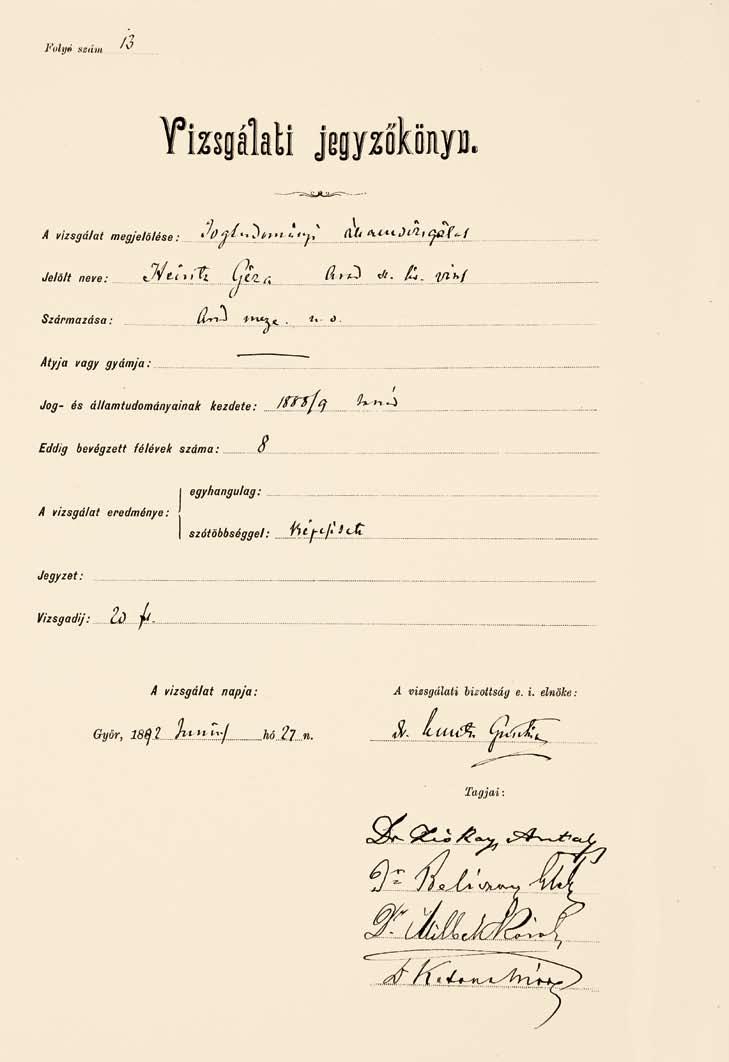 Folyó szám 13
Vizsgálati jegyzőkönyv.
A vizsgálat megjelölése: Jogtudományi államvizsgálat
Jelölt neve: Heintz Géza Arad
Származása: Arad
Atyja vagy gyámja:
Jog- és államtudományainak kezdete: 1888/9
Eddig bevégzett félévek száma: 8
A vizsgálat eredménye:
egyhangulag:
szótöbbséggel: képesítve
Jegyzet:
Vizsgadij: 20 frt.
A vizsgálat napja:
Győr, 1892 Junius hó 27 n.
A vizsgálati bizottság e. i. elnöke:
dr.
Tagjai:
Dr Antal
Dr Beliczay
Dr. Károly
Dr Katona Mór